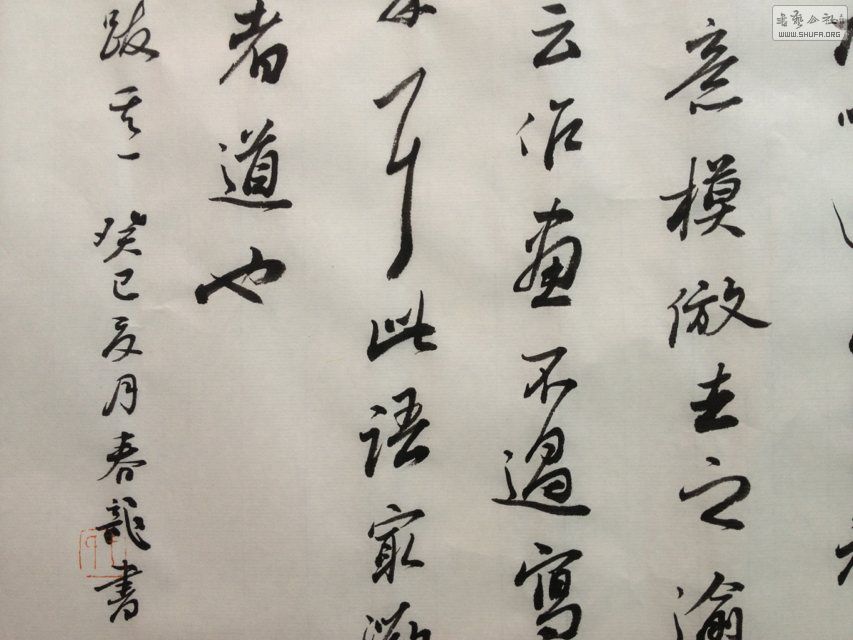 意模倣去之渝
云作画不過寫
耳此語寂
者道也
跋其一 癸巳亥月春龍書
書藝公社
WWW.SHUFA.ORG